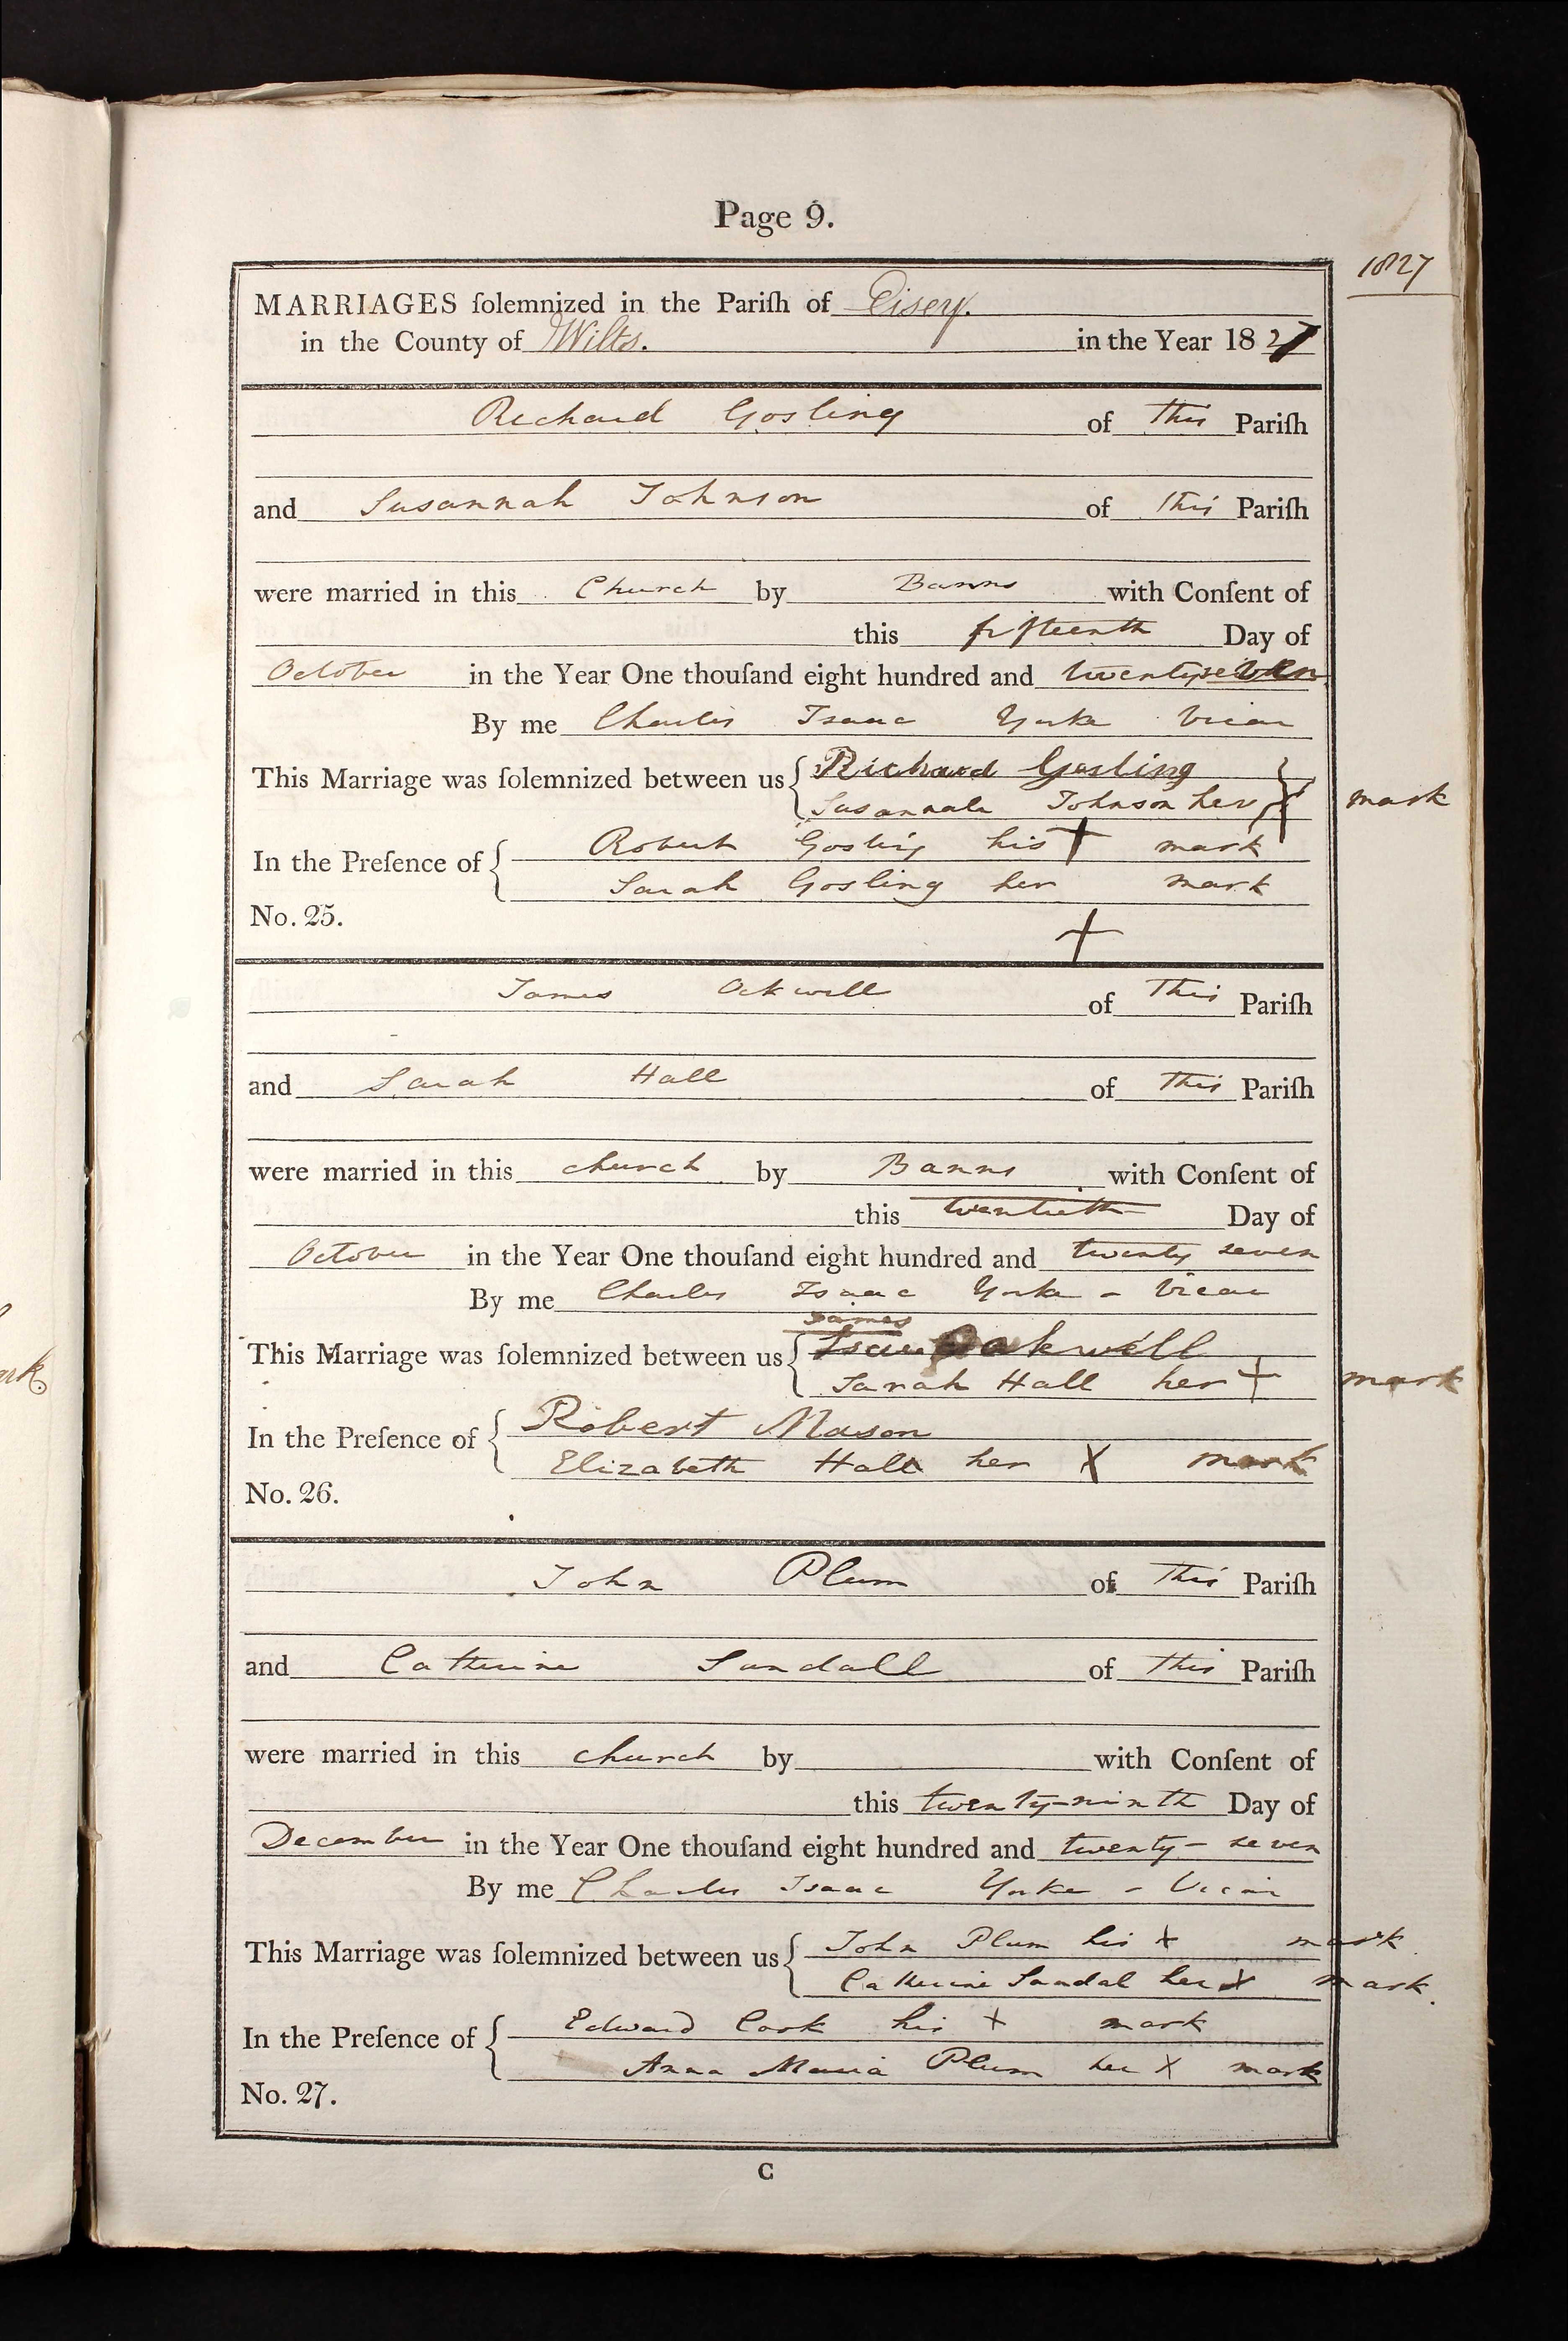 Page 9.
1827
MARRIAGES ſolemnized in the Pariſh of Eisey.
in the County of Wilts. in the Year 1827
Richard Gosling of this Pariſh
and Susannah Johnson of this Pariſh
were married in this Church by Banns with Conſent of
this fifteenth Day of
October in the Year One thouſand eight hundred and twenty seven
By me Charles Isaac Yorke Vicar
This Marriage was ſolemnized between us { Richard Gosling
Susannah Johnson her X mark
In the Preſence of { Robert Gosling his + mark
Sarah Gosling her + mark
No. 25.
James Ockwell of This Pariſh
and Sarah Hall of This Pariſh
were married in this church by Banns with Conſent of
this twentieth Day of
October in the Year One thouſand eight hundred and twenty seven
By me Charles Isaac Yorke - Vicar
James
This Marriage was ſolemnized between us { Oakwell
Sarah Hall her + mark
In the Preſence of { Robert Mason
Elizabeth Hall her X mark
No. 26.
John Plum of This Pariſh
and Catherine Sandall of this Pariſh
were married in this church by with Conſent of
this twenty-ninth Day of
December in the Year One thouſand eight hundred and twenty-seven
By me Charles Isaac Yorke - Vicar
This Marriage was ſolemnized between us { John Plum his X mark
Catherine Sandal her X mark.
In the Preſence of { Edward Cook his X mark
Anna Maria Plum her X mark
No. 27.
C